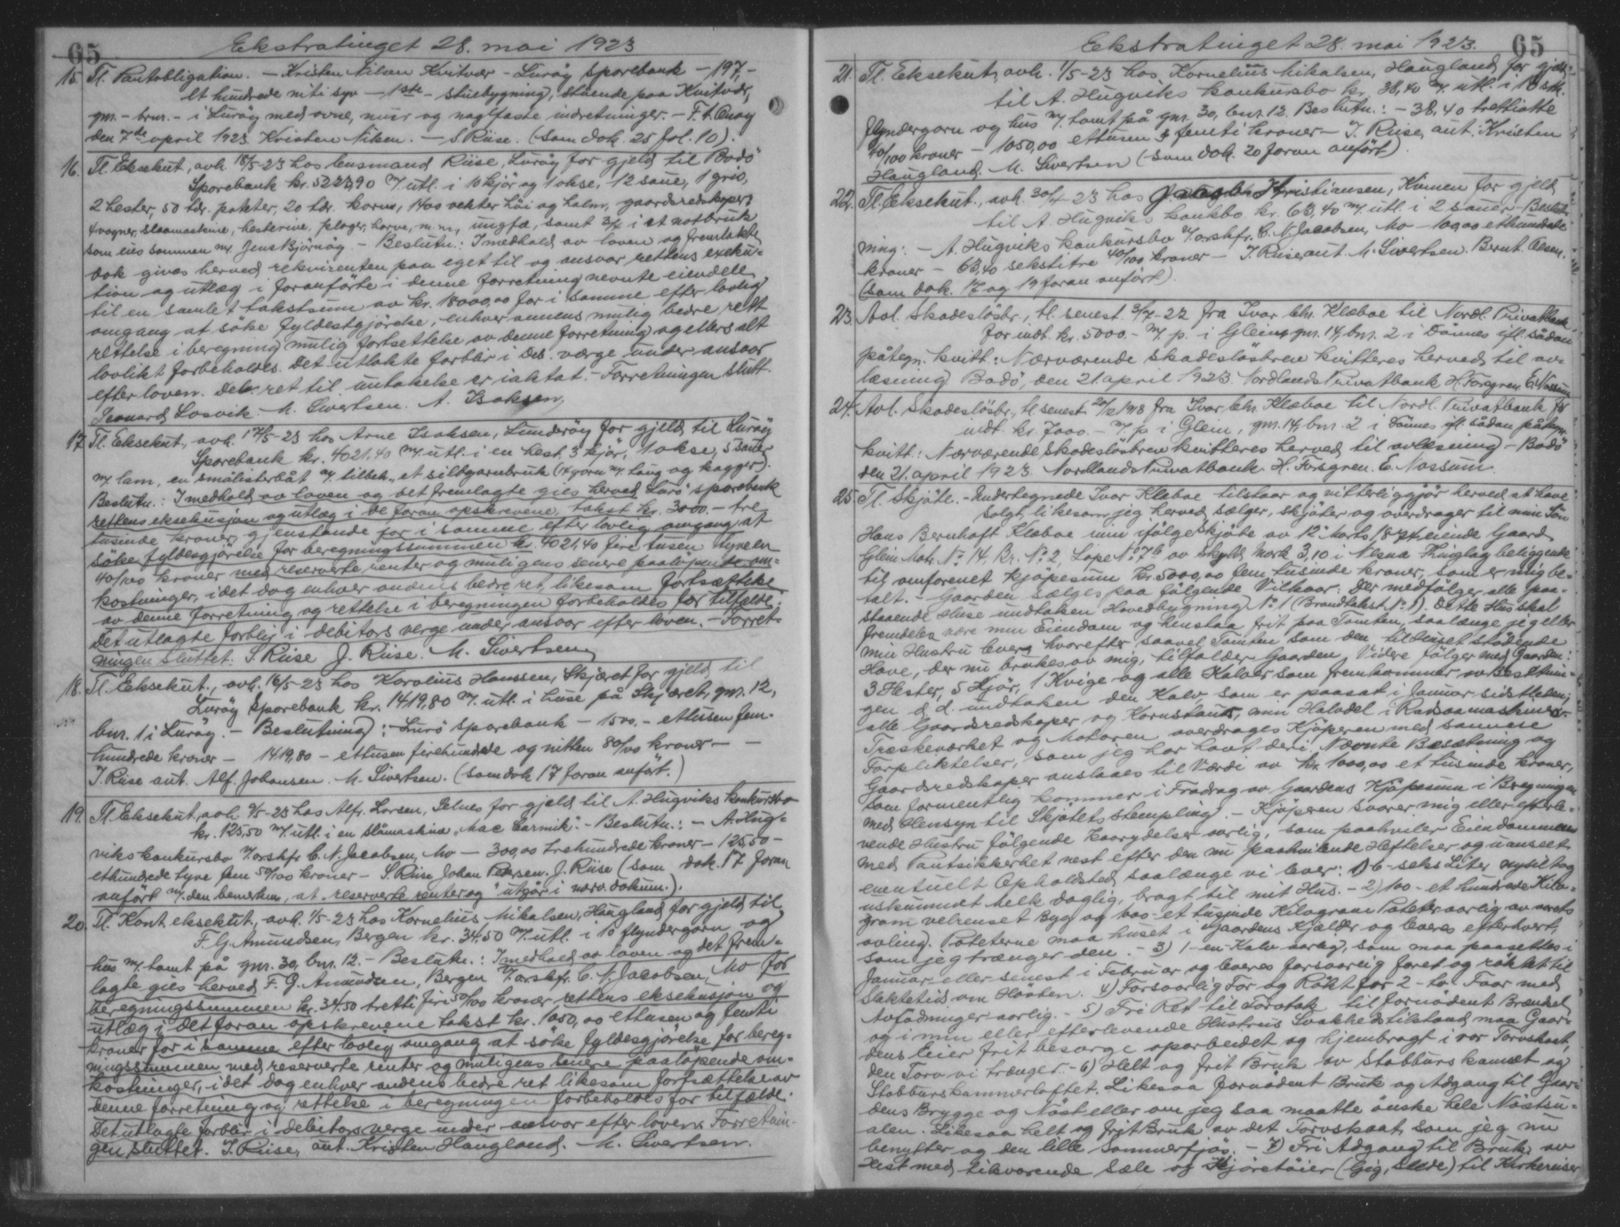 65
Ekstratinget 28. mai 1923
15. Tl. Pantobligation. – Kristen Nilsen Kvitvær – Lurøy Sparebank – 197,-
et hundrede nitti syv – 1ste – stuebygning, stående paa Kvitvær,
gnr. – brnr. – i Lurøy med ovne, murer og nagfaste indretninger. –
den 7de april 1923. Kristen Nilsen. – S. Riise. (som dok. 25 fol. 10).
16. Tl. Eksekut. avh. 18/5-23 hos Lensmand Riise, Lurøy for gjeld til Bodø
Sparebank kr. 52 2390 m/ utl. i 10 kjør og 1 okse, 12 saue, 1 gris,
2 hester, 50 tdr. poteter, 20 tdr. korn, 1400 vekter høi og halm, gaardsredskaper,
4 vogner, slaamaskine, hesterive, ploger, harve, m.m., ungfæ, samt 3/4 i et notbruk
som eies sammen m/ Jens Bjørnøy. – Beslutn: I medhold av loven og fremlakte
dok gives herved rekvirenten paa eget til og ansvar rettens exeku-
tion og utlæg i foranførte i denne forretning nevnte eiendele
til en samlet takstsum av kr. 18000,00 for i samme efter lovlig
omgang at søke fyldestgjørelse, enhver annens mulig bedre rett
rettelse i beregning mulig fortsettelse av denne forretning og ellers alt
lovlikt forbeholdes. Det utlakte forblir i deb. værge under ansvar
efter loven. Deb. ret til undtakelse er iaktat. – Forretningen slutt.
Leonard Losvik. M. Sivertsen. A. Isaksen,
17. Tl. Eksekut., avh. 17/5-23 hos Arne Isaksen, Sunderøy for gjeld til Lurøy
Sparebank kr. 4021.40 m/ utl. i en hest, 3 kjør, 1 okse, 5 sauer
m/ lam, en småtisterbåt m/ tilbeh., et sildgarnbruk (17 garn m/ tang og kagger).
Beslutn.: I medhold av loven og det fremlagte gies herved Lurø sparebank
rettens eksekusjon og utlæg i de foran opskrevne, takst kr. 3000.- tre
tusinde kroner, gjenstande for i samme efter lovlig omgang at
søke fyldesgjørelse for beregningssummen kr. 4021,40 fire tusen tyveen
40/100 kroner med reserverte renter og muligens senere paaløpende om-
kostninger, idet dog enhver andens bedre ret, likesom fortsættelse
av denne forretning og rettelse i beregningen forbeholdes for tilfælde.
Det utlagte forblir i debitors verge under ansvar efter loven. – Forret-
ningen sluttet. S. Riise J. Riise. M. Sivertsen,
18. Tl. Eksekut., avh. 16/5-23 hos Karolius Hanssen, Skjæret for gjeld til
Lurøy Sparebank kr. 1419,80 m/ utl. i huse på Skjæret, gnr. 12,
bnr. 1 i Lurøy. – Beslutning: Lurø Sparebank – 1500.- ettusen fem-
hundrede kroner – 1419,80 – ettusen firehundrede og nitten 80/100 kroner –
J. Riise aut. Alf. Johansen. M. Sivertsen. (som dok 17 foran anført.)
19. Tl. Eksekut, avh. 9/5-23 hos Alfr. Larsen, Selnes for gjeld til A. Hugviks konkursbo
kr. 125,50 m/ utl. i en slåmaskine "Mac Carmik". – Beslutn.: – A. Hug-
viks konkursbo v/ orskfr. C. N. Jacobsen, Mo – 300,00 trehundrede kroner – 125,50 –
ethundrede tyve fem 50/100 kroner – S. Riise Johan Petersen. J. Riise (som dok. 17 foran
anført m/ den bemerkn, at "reserverte renter og" utgår i nærv. dokum.).
20. Tl. Kont. eksekut, avh. 1/5-23 hos Kornelius Mikalsen, Haugland for gjeld til
F. G. Amundsen, Bergen kr. 34.50 m/ utl. i 10 flyndergarn og
hus m/ tomt på gnr. 30, bnr. 12. – Beslutn.: I medhold av loven og det frem-
lagte gies herved F. G. Amundsen, Bergen v/ orskfr. C. N. Jacobsen Mo for
beregningssummen kr. 34.50 tretti fire 50/100 kroner rettens eksekusjon og
utlæg i det foran opskrevene takst kr. 1050,00 ettusen og femti
kroner for i samme efter lovlig omgang at søke fyldesgjørelse for bereg-
ningssummen med reserverte renter og muligens senere paaløpende om-
kostninger, idet dog enhver andens bedre ret likesom fortsættelse av
denne forretning og rettelse i beregningen forbeholdes for tilfælde.
Det utlagte forblir i debitors verge under ansvar efter loven. Forretnin-
gen sluttet. J. Riise, aut. Kristen Haugland. M. Sivertsen.
Ekstratinget 28. mai 1923.
65
21. Tl. Eksekut, avh. 1/5-23 hos Kornelius Mikalsen, Haugland for gjeld
til A. Hugviks konkursbo kr. 38,40 m/ utl. i 10 stk.
flyndergarn og hus m/ tomt på gnr. 30, bnr. 12. Beslutn.: – 38,40 trettiotte
40/100 kroner – 1050,00 ettusen & femti kroner – J. Riise, aut. Kristen
Haugland. M. Sivertsen (som dok. 20 foran anført).
22. Tl. Eksekut., avh. 30/4-23 hos Kristiansen, Humen for gjeld
til A. Hugviks konkbo kr. 63,40 m/ utl. i 2 sauer. Beslut-
ning: – A Hugviks konkursbo v/ orskfr. C. N. Jacobsen, Mo – 100,00 ethundrede
kroner – 63,40 sekstitre 40/100 kroner – J. Riise aut. M. Sivertsen. Bernt Olsen.
(som dok. 17 og 19 foran anført)
23. Avl. Skadesløsbr., tl. senest 3/7-22 fra Ivar Chr. Klæboe til Nordl. Privatbank
for indt. kr. 5000.- m/ p. i Glein, gnr. 14, bnr. 2 i Dønnes ifl. sådan
påtegn. kvitt: Nærværende skadesløsbrev kvitteres herved til av-
læsning Bodø, den 21 april 1923. Nordlands Privatbank H. Forsgren. E. Nossum
24. Avl. Skadesløsbr., tl senest 20/12 1918 fra Ivar Chr. Klæboe til Nordl. Privatbank for
indt. kr 7000.- m/ p i Glein, gnr. 14, bnr. 2 i Dønnes ifl. sådan påtegn.
kvitt: Nærværende skadesløsbrev kvitteres herved til avlæsning – Bodø
den 21. april 1923. Nordlands Privatbank H. Forsgren. E. Nossum.
25. Tl. Skjøte. – Undertegnede Ivar Klæboe tilstaar og vitterliggjør herved at have
solgt, likesom jeg herved sælger, skjøter og overdrager til min Søn
Hans Bernhoft Klæboe min ifølge Skjøte av 12te Marts 1874 eiende Gaard
Glein Matr. No 14, Br. No 2, Løpe No 76 av Skyld Mark 3,10 i Nesna Thinglag beliggende
til omforenet Kjøpesum Kr. 5000,00 fem tusinde kroner, som er mig be-
talt. – Gaarden sælges paa følgende Vilkaar: Der medfølger alle paa-
staaende Huse undtaken Hovedbygning No 1 (Brandtakst No 1). Dette Hus skal
fremdeles være min Eiendom og henstaa frit paa Tomten, saalænge jeg eller
min Hustru lever, hvorefter saavel Tomten som den tilhusel stødende
Have, der nu brukes av mig, tilfalder Gaarden. Videre følger med Gaarden:
3 Hester, 5 Kjør, 1 Kvige og alle Kalver som fremkommer av Besætnin-
gen d. å. undtaken den Kalv som er paasat i Januar sidstleden;
alle Gaardsredskaper og Kornstaur, min Halvdel i Radsaamaskinen
Treskeverket og Motoren overdrages Kjøperen med samme
Forpliktelser, som jeg har havt dem. Nævnte Besætning og
Gaardsredskaper anslaaes til Værdi av kr. 1000,00 et tusinde kroner,
som formentlig kommer i Fradrag av Gaardens Kjøpesum i Beregningen
med Hensyn til Skjøtets Stempling. – Kjøperen svarer mig eller efterle-
vende Hustru følgende Kaarydelser aarlig, som paahviler Eiendommen
med Pantsikkerhet nest efter den nu paahvilende Heftelser og uanset
eventuelt Opholdsted saalænge vi lever: 1) 6 – seks Liter nysilt og
uskummet Melk daglig, bragt til mit Hus. – 2) 100 – et hundrede Kilo-
gram velrenset Byg og 1000 – et tusinde Kilogram Poteter aarlig av aarets
avling. Poteterne maa huset i Gaardens Kjælder og leveres efterhvert,
som jeg trænger den. – 3) 1 – en – Kalv aarlig, som maa paasettes i
Januar eller senest i Februar og leveres forsvarlig foret og røktet til
Slaktetid om Høsten. 4) Forsvarlig For og Røkt for 2 – to Faar med
Avfødninger aarlig. – 5) Fri Ret til Torvtak til fornødent Brændsel
og i min eller efterlevende Hustrus Svakhedstilstand maa Gaar-
dens Eier frit besørge oparbeidet og hjembragt i vor Torvskaat,
den Torv vi trænger. – 6) Helt og frit Bruk av Stabburskammet og
Stabburskammerloftet. Likesaa fornødent Bruk og Adgang til Gaar-
dens Brygge og Nøst eller om jeg saa maatte ønske hele Nøstun-
alen. Likesaa helt og frit Bruk av det Torvskaat, som jeg nu
benytter og den lille Sommerfjøs. – 7) Fri Adgang til Bruk av
Hest med tilsvarende Sæle og Kjøretøier (Gig, Slæde) til Kirkereiser